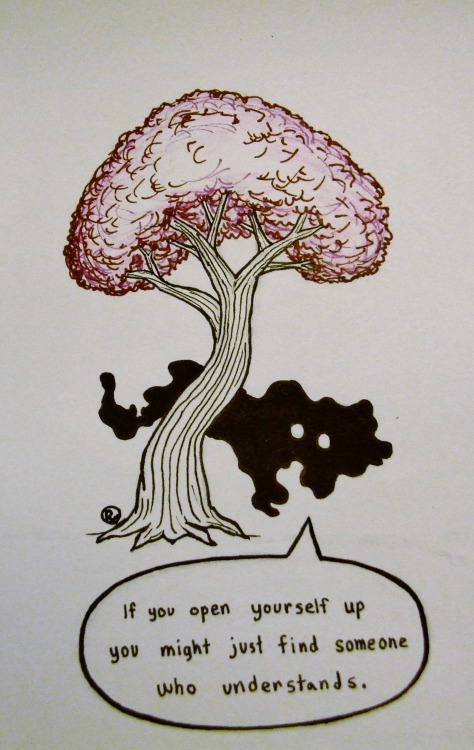 If you open yourself up
you might just find someone
who understands.